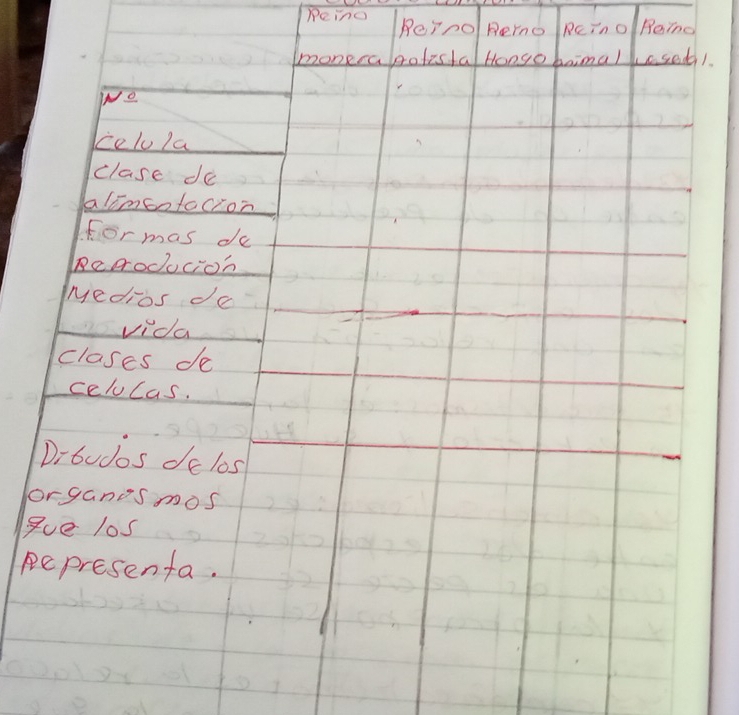 Reino Reino Reino Reino Reino
monera protista Hongo animal vegetal.
Nº
celula
clase de
alimentacion
Formas de
Reproducion
Medios de
vida
clases de
celulas.
Dibudos de los
organismos
que los
Representa.